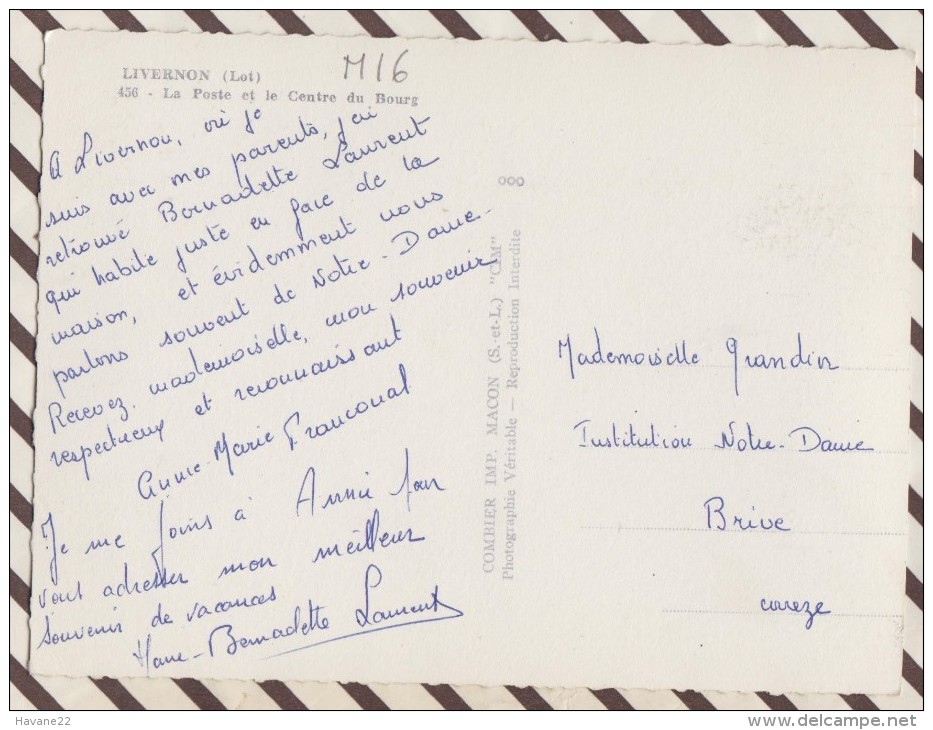 LIVERNON (Lot)
456 - La Poste et le Centre du Bourg
M16
A Livernon, où je
suis avec mes parents, j'ai
retrouvé Bernadette Laurent
qui habite juste en face de la
maison, et évidemment nous
parlons souvent de Notre-Dame.
Recevez, mademoiselle, mon souvenir
respectueux et reconnaissant
Annie-Marie Franconal
Je me joins à Annie pour
vous adresser mon meilleur
souvenir de vacances
Marie-Bernadette Laurent
COMBIER IMP. MACON (S.-et-L.) "CIM"
Photographie Véritable — Reproduction Interdite
Mademoiselle Grandin
Institution Notre-Dame
Brive
Corrèze
Havane22
www.delcampe.net